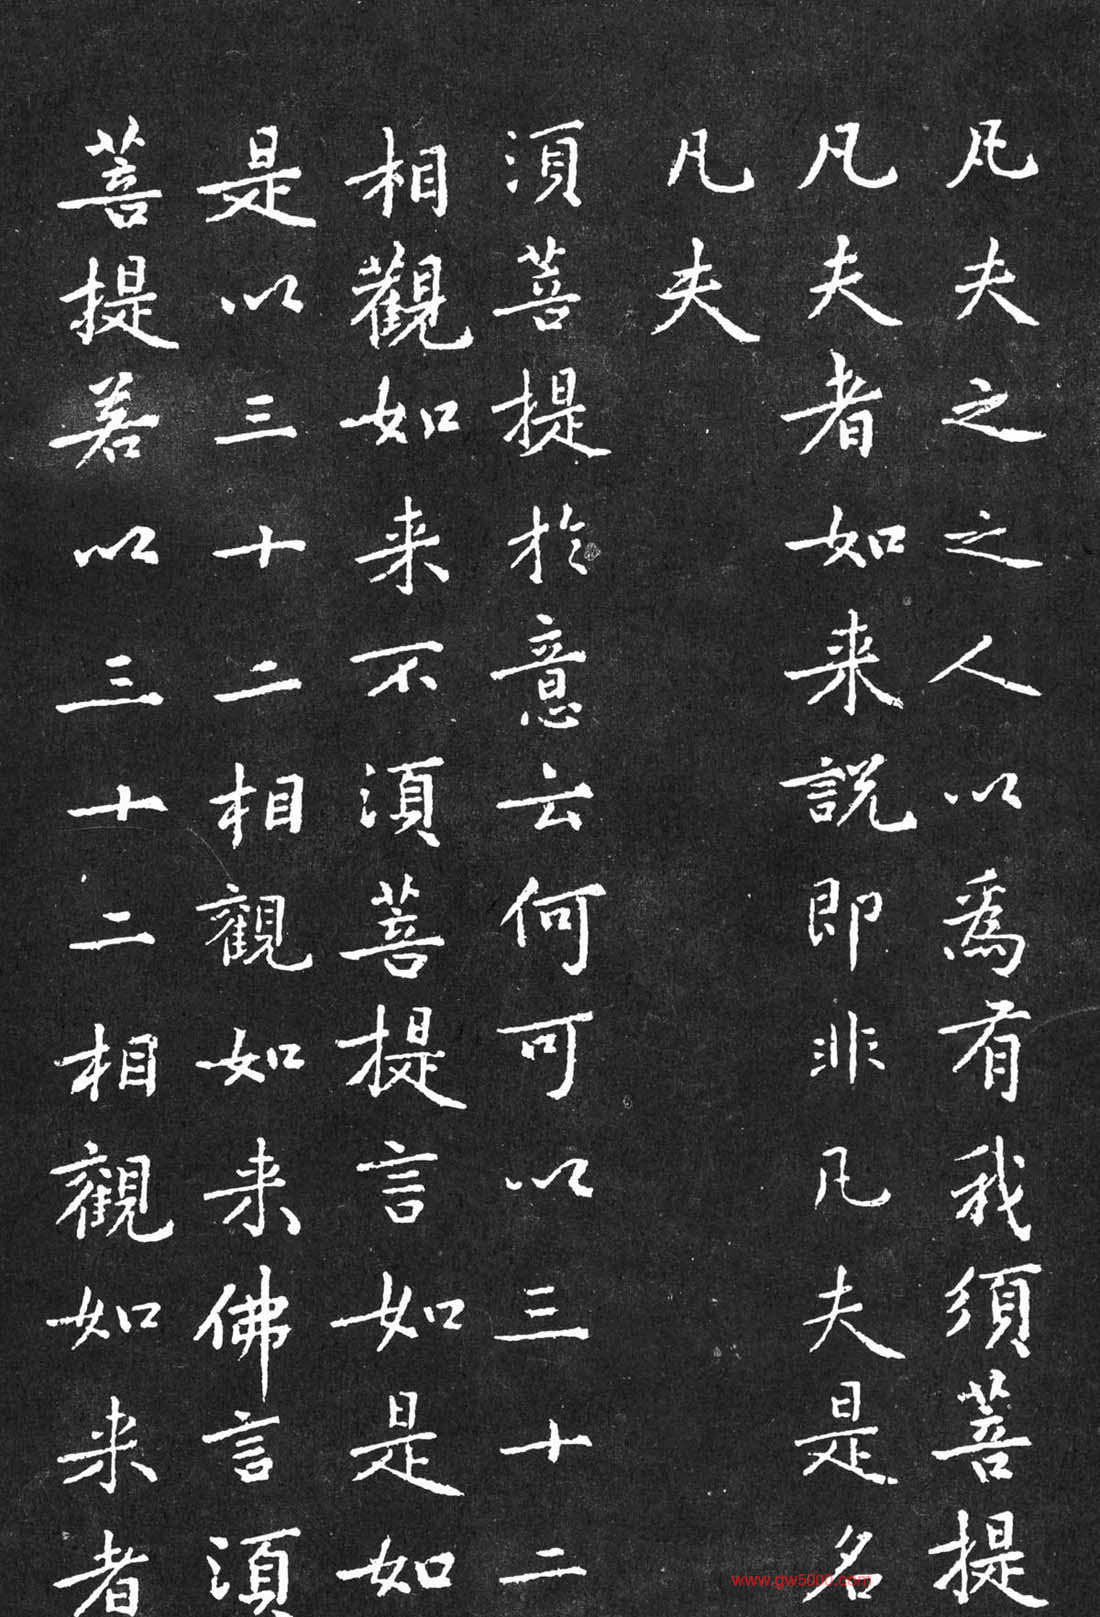 凡夫之之人以爲有我須菩提
凡夫者如来説即非凡夫是名
凡夫
須菩提於意云何可以三十二
相觀如来不須菩提言如是如
是以三十二相觀如来佛言須
菩提若以三十二相觀如来者
www.gw5000.com